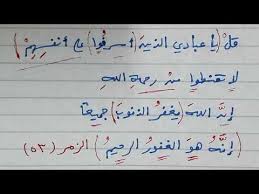 قلْ (يا عبادي الذينَ (أسرفُوا) على أنفسِهِمْ)
لا تقنطُوا منْ رحمةِ اللهِ
إنَّ اللهَ (يغفرُ الذنوبَ) جميعًا
(إنَّهُ هوَ الغفورُ الرحيمُ) الزمر (٥٣)